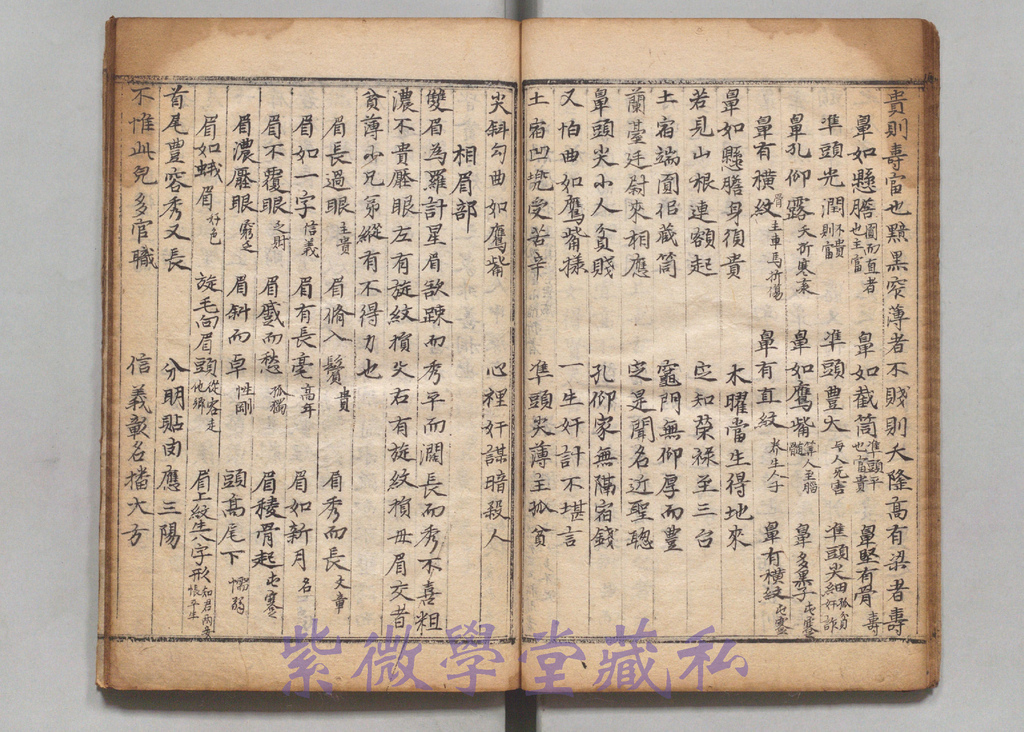 貴則壽富也黯黑窄薄者不賤則夭隆高有梁者壽
鼻如懸膽圓而直者也主富 鼻如截筒準頭平也富貴 鼻堅有骨壽
準頭光潤不貴則富 準頭豐大每人无害 準頭尖細孤貧奸詐
鼻孔仰露夭折寒索 鼻如鷹嘴算人至腦髓 鼻多黑子屯蹇
鼻有橫紋主車馬折傷 鼻有直紋养生人子 鼻有橫紋屯蹇
鼻如懸膽身須貴 木曜當生得地來
若見山根連額起 定知榮祿至三台
土宿端圓侣截筒 竈門無仰厚而豐
蘭臺廷尉來相應 定是聞名近聖聰
鼻頭尖小人貧賤 孔仰家無隔宿錢
又怕曲如鷹嘴樣 一生奸計不堪言
土宿凹兠受苦辛 準頭尖薄主孤貧
尖斜勾曲如鷹嘴 心裡奸謀暗殺人
相眉部
雙眉為羅計星眉欲疎而秀平而濶長而秀不喜粗
濃不貴壓眼左有旋紋損父右有旋紋損母眉交者
貧薄少兄弟縱有不得力也
眉長過眼主貴 眉脩入鬢貴 眉秀而長文章
眉如一字信義 眉有長毫高年 眉如新月名
眉不覆眼乏財 眉蹙而愁孤獨 眉稜骨起屯蹇
眉濃壓眼窮乏 眉斜而卓性剛 頭高尾下懦弱
眉如蛾眉好色 旋毛向眉頭從容走他鄉 眉上紋生八字形 兩妻帳平生
首尾豐容秀又長 分明貼肉應三陽
不惟此兒多官職 信義彰名擋大方
紫微學堂藏私